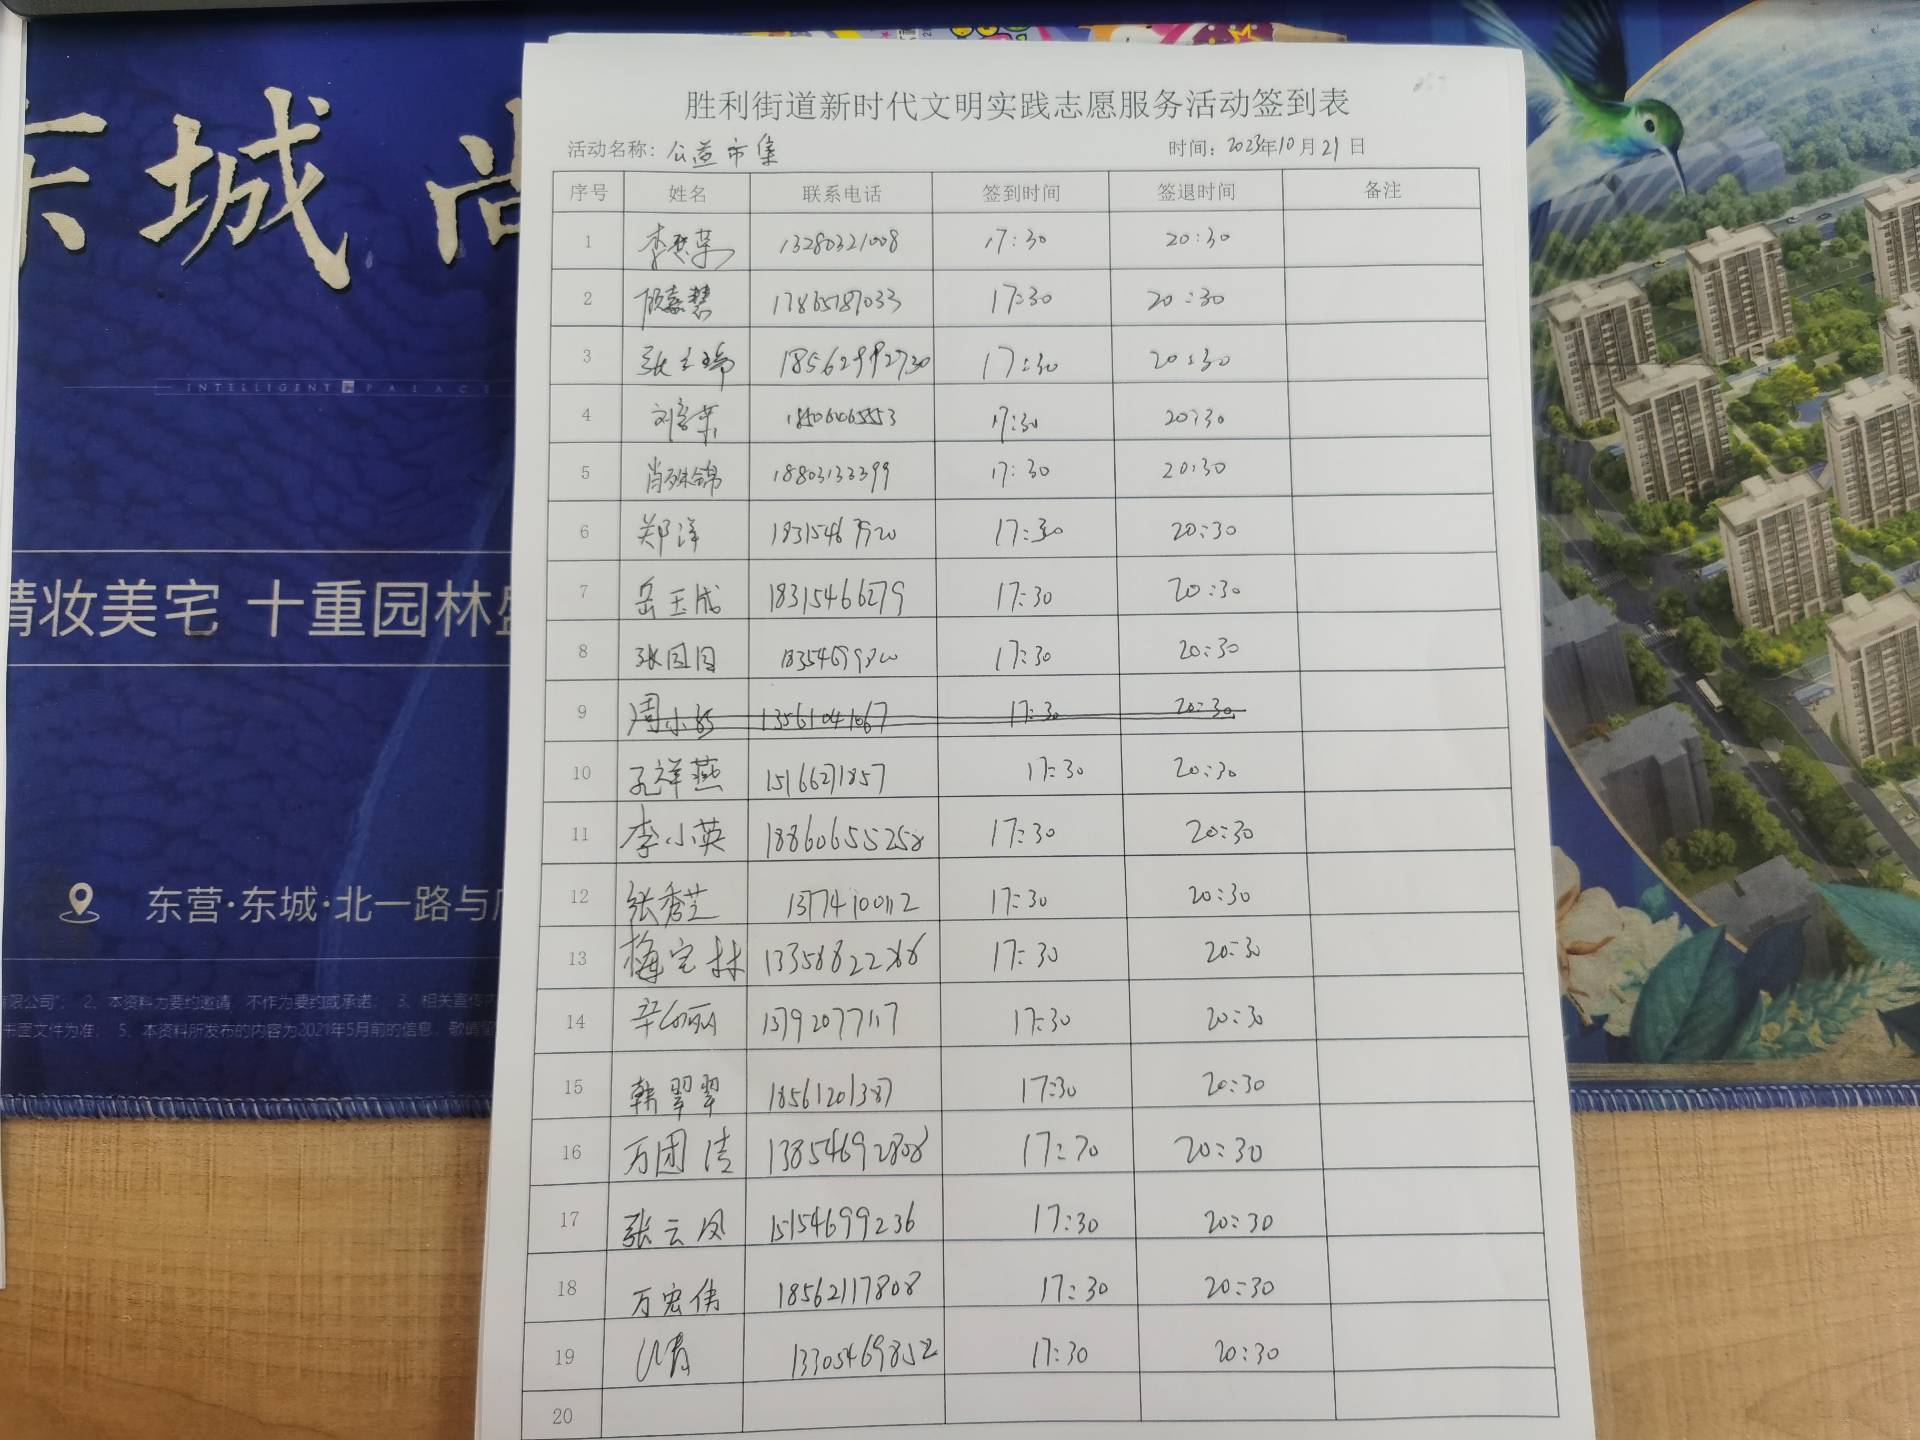 东城 尚
INTELLIGENT PALACE
精妆美宅 十重园林盛
东营·东城·北一路与
有限公司"； 2、本资料为要约邀请，不作为要约或承诺； 3、相关宣传内
5、本资料所发布的内容为2021年5月前的信息，敬请
胜利街道新时代文明实践志愿服务活动签到表
活动名称：公益市集 时间：2023年10月21日
序号 姓名 联系电话 签到时间 签退时间 备注
1 13280321008 17:30 20:30
2 17865187033 17:30 20:30
3 18562992730 17:30 20:30
4 18506065553 17:30 20:30
5 肖殊锦 18803133399 17:30 20:30
6 郑洋 17:30 20:30
7 岳玉成 18315466279 17:30 20:30
8 张囡囡 17:30 20:30
9 周小 13561041067 17:30 20:30
10 孔祥燕 15166271857 17:30 20:30
11 李小英 18860655258 17:30 20:30
12 张秀芝 17:30 20:30
13 梅宝林 17:30 20:30
14 13792077117 17:30 20:30
15 韩翠翠 18561201387 17:30 20:30
16 万团洁 13854692808 17:30 20:30
17 张云凤 15154699236 17:30 20:30
18 万宏伟 18562117808 17:30 20:30
19 13305469852 17:30 20:30
20